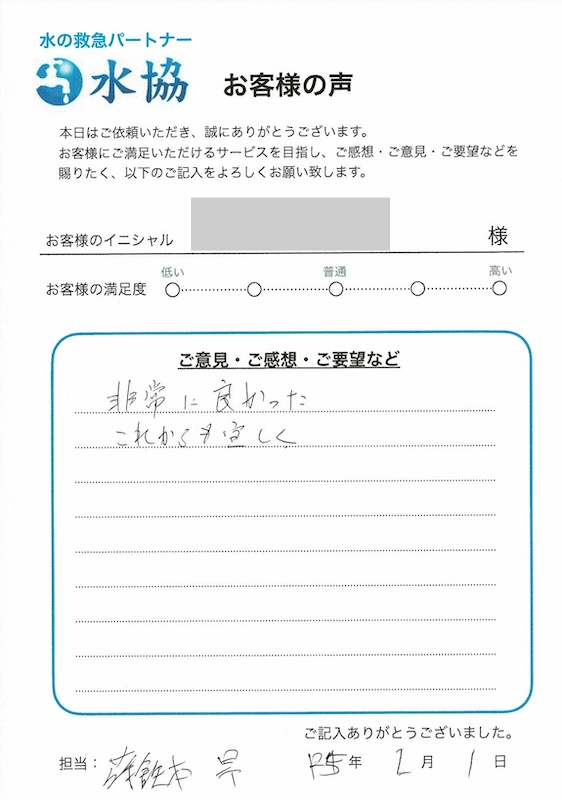 水の救急パートナー
水協 お客様の声
本日はご依頼いただき、誠にありがとうございます。
お客様にご満足いただけるサービスを目指し、ご感想・ご意見・ご要望などを
賜りたく、以下のご記入をよろしくお願い致します。
お客様のイニシャル 様
低い 普通 高い
お客様の満足度
ご意見・ご感想・ご要望など
非常に良かった
これからも宜しく
ご記入ありがとうございました。
担当: 年 2月 1日